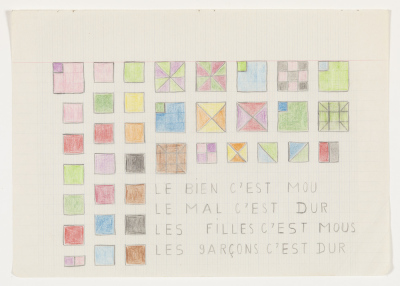 LE BIEN C'EST MOU
LE MAL C'EST DUR
LES FILLES C'EST MOUS
LES gARÇONS C'EST DUR